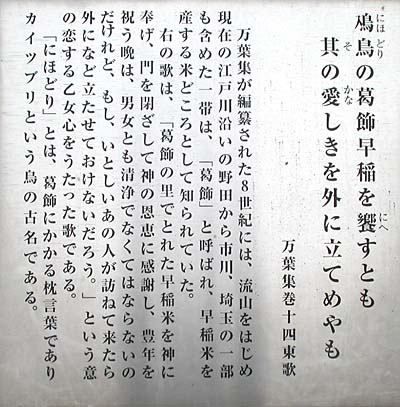 にほ どり
鳰鳥の葛飾早稲を饗すとも
にへ
其の愛しきを外に立てめやも
そ かな
万葉集巻十四東歌
万葉集が編纂された8世紀には、流山をはじめ
現在の江戸川沿いの野田から市川、埼玉の一部
も含めた一帯は、「葛飾」と呼ばれ、早稲米を
産する米どころとして知られていた。
右の歌は、「葛飾の里でとれた早稲米を神に
奉げ、門を閉ざして神の恩恵に感謝し、豊年を
祝う晩は、男女とも清浄でなくてはならないの
だけれど、もし、いとしいあの人が訪ねて来たら
外になど立たせておけないだろう。」という意
の恋する乙女心をうたった歌である。
「にほどり」とは、葛飾にかかる枕言葉であり
カイツブリという鳥の古名である。